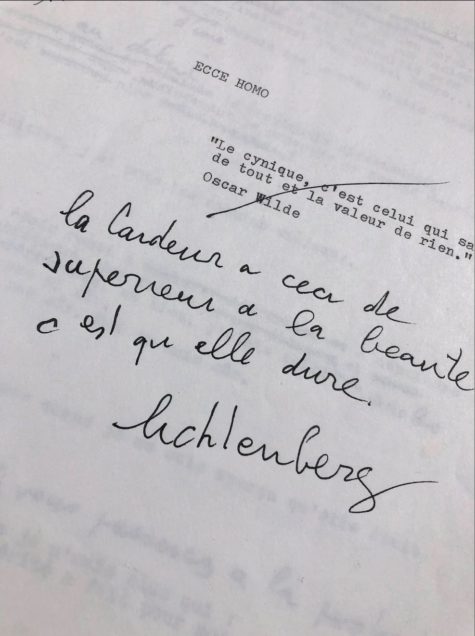 ECCE HOMO
"Le cynique, c'est celui qui sa
de tout et la valeur de rien."
Oscar Wilde
la Laideur a ceci de
superieur a la beaute
c est qu elle dure.
lichtenberg